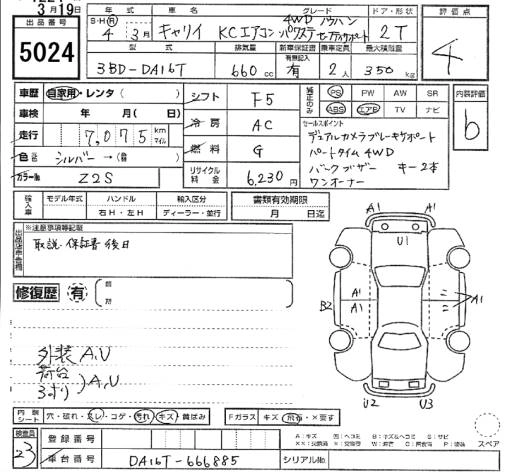 3月19日
年式 車名 グレード ドア・形状 評価点
出品番号
5024
S・H・Ⓡ 4年 3月 キャリイ KCエアコン パワステ 4WD ノウハン セーフティサポート 2T 4
型式 排気量 新車保証書 乗車定員 最大積載量
3BD-DA16T 660cc 有無記入 有 2人 350kg
車歴 自家用・レンタ( ) シフト F5 純正のみ PS PW AW SR 内装評価
車検 年 月( 日) ABS エアB TV ナビ b
走行 7,075 km マイル 冷房 AC セールスポイント
デュアルカメラブレーキサポート
色 シルバー→( ) 燃料 G パートタイム4WD
バックブザー キー2本
カラーNo Z2S リサイクル料金 6,230円 ワンオーナー
輸入車 モデル年式 ハンドル 輸入区分 書類有効期限
年 右H・左H ディーラー・並行 月 日迄
※注意事項等記載
取説・保証書後日
修復歴 有
A1 A1
U1
B2 A1 A1 A1
U2 U3
外装 A,U
荷台
3方 A,U
内張シート 穴・破れ・スレ・コゲ・汚れ・キズ・黄ばみ Fガラス キズ・飛石・×要す
検査員 23
登録番号
車台番号 DA16T-666885 シリアルNo.
スペア